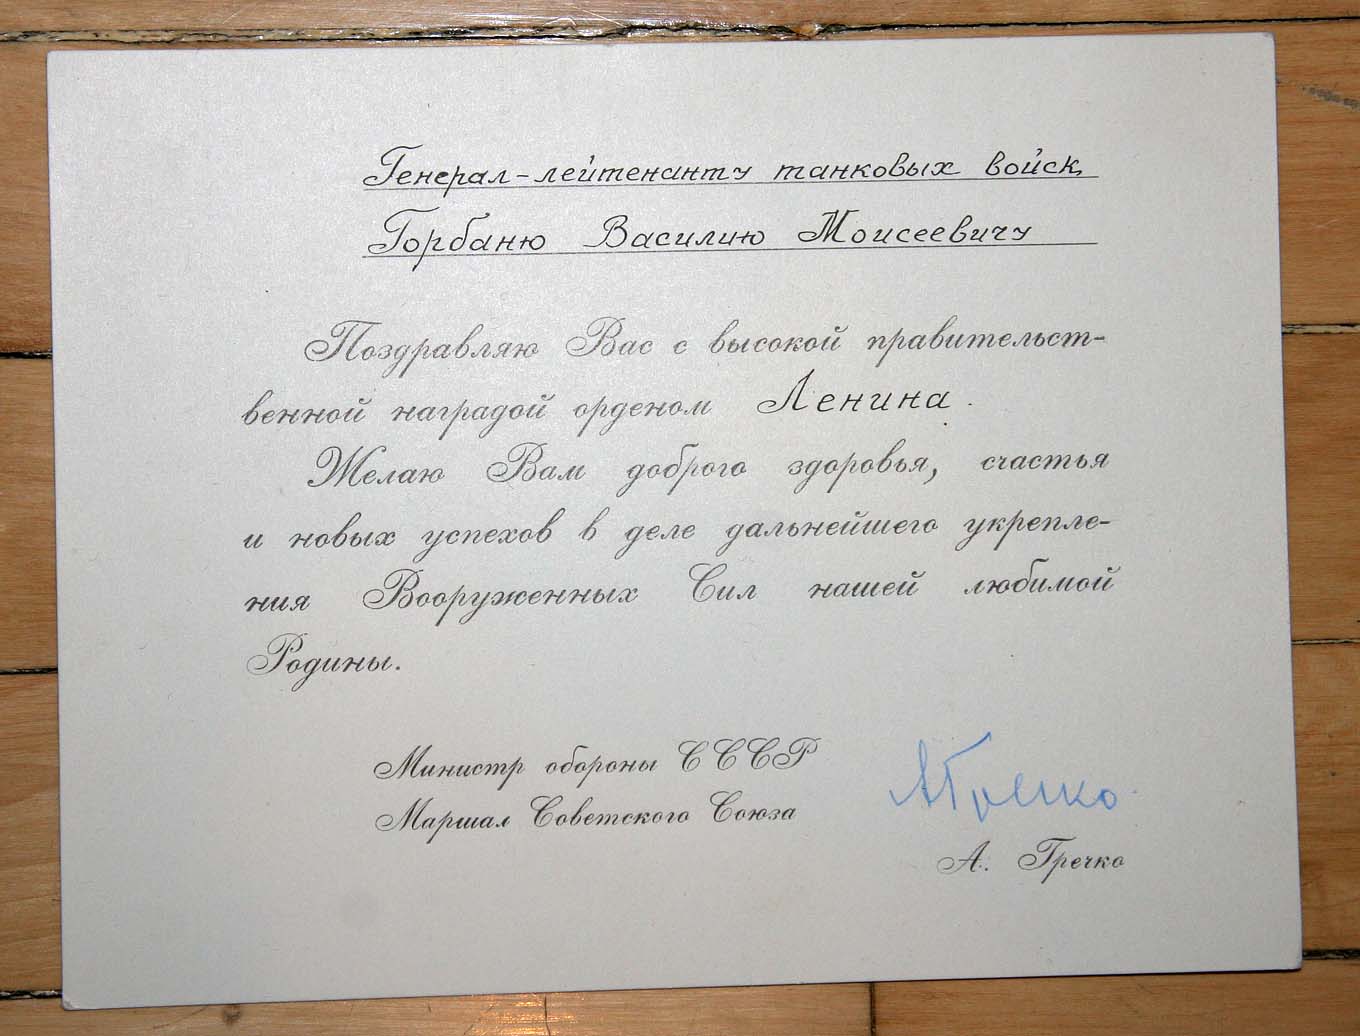 Генерал-лейтенанту танковых войск
Горбаню Василию Моисеевичу
Поздравляю Вас с высокой правительст-
венной наградой орденом Ленина.
Желаю Вам доброго здоровья, счастья
и новых успехов в деле дальнейшего укрепле-
ния Вооруженных Сил нашей любимой
Родины.
Министр обороны СССР
Маршал Советского Союза
АГречко
А. Гречко